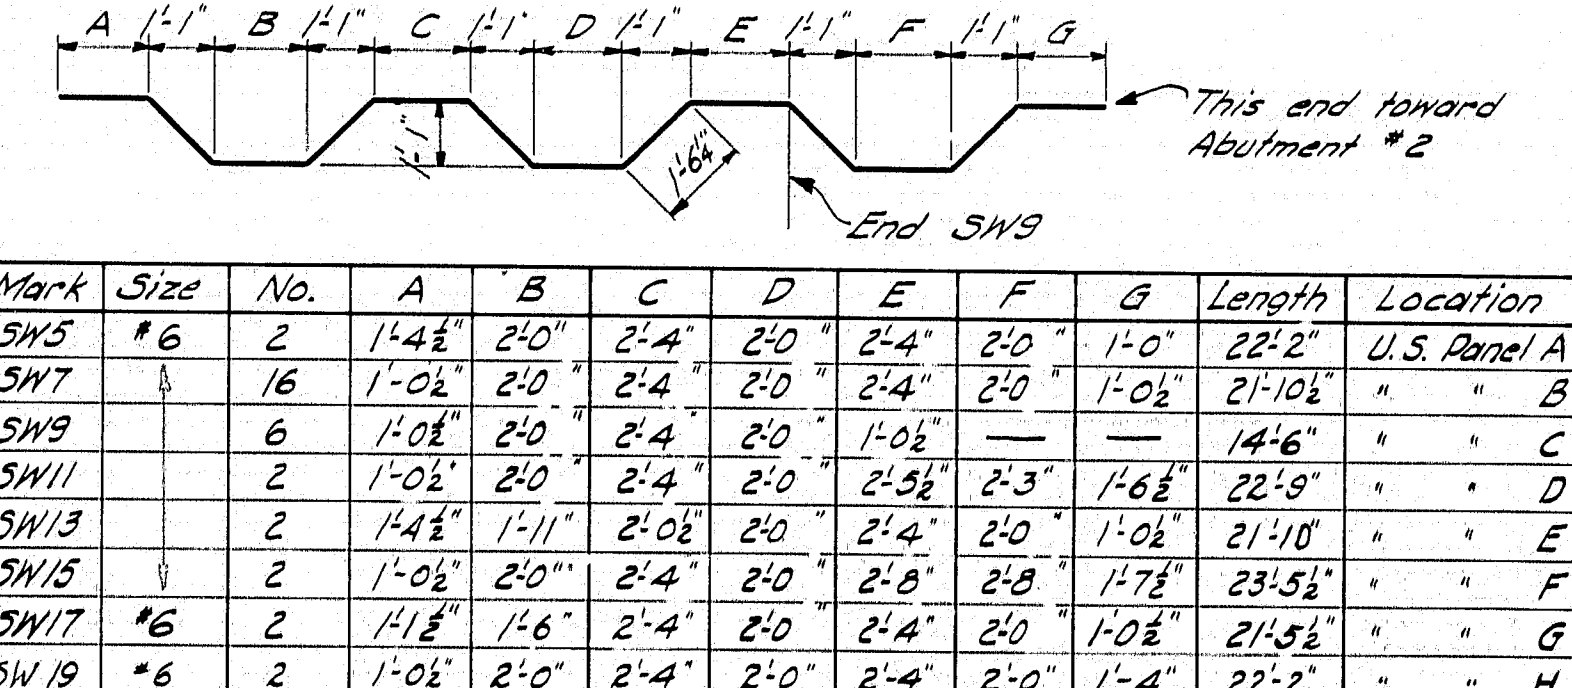 A 1'-1" B 1'-1" C 1'-1" D 1'-1" E 1'-1" F 1'-1" G
This end toward
Abutment #2
1'-1"
1'-6¼"
End SW9
Mark Size No. A B C D E F G Length Location
SW5 #6 2 1'-4½" 2'-0" 2'-4" 2'-0" 2'-4" 2'-0" 1'-0" 22'-2" U.S. Panel A
SW7 16 1'-0½" 2'-0" 2'-4" 2'-0" 2'-4" 2'-0" 1'-0½" 21'-10½" " " B
SW9 6 1'-0½" 2'-0" 2'-4" 2'-0" 1'-0½" — — 14'-6" " " C
SW11 2 1'-0½" 2'-0" 2'-4" 2'-0" 2'-5½" 2'-3" 1'-6½" 22'-9" " " D
SW13 2 1'-4½" 1'-11" 2'-0½" 2'-0" 2'-4" 2'-0" 1'-0½" 21'-10" " " E
SW15 2 1'-0½" 2'-0" 2'-4" 2'-0" 2'-8" 2'-8" 1'-7½" 23'-5½" " " F
SW17 #6 2 1'-1½" 1'-6" 2'-4" 2'-0" 2'-4" 2'-0" 1'-0½" 21'-5½" " " G
SW19 #6 2 1'-0½" 2'-0" 2'-4" 2'-0" 2'-4" 2'-0" 1'-4" 22'-2" " " H